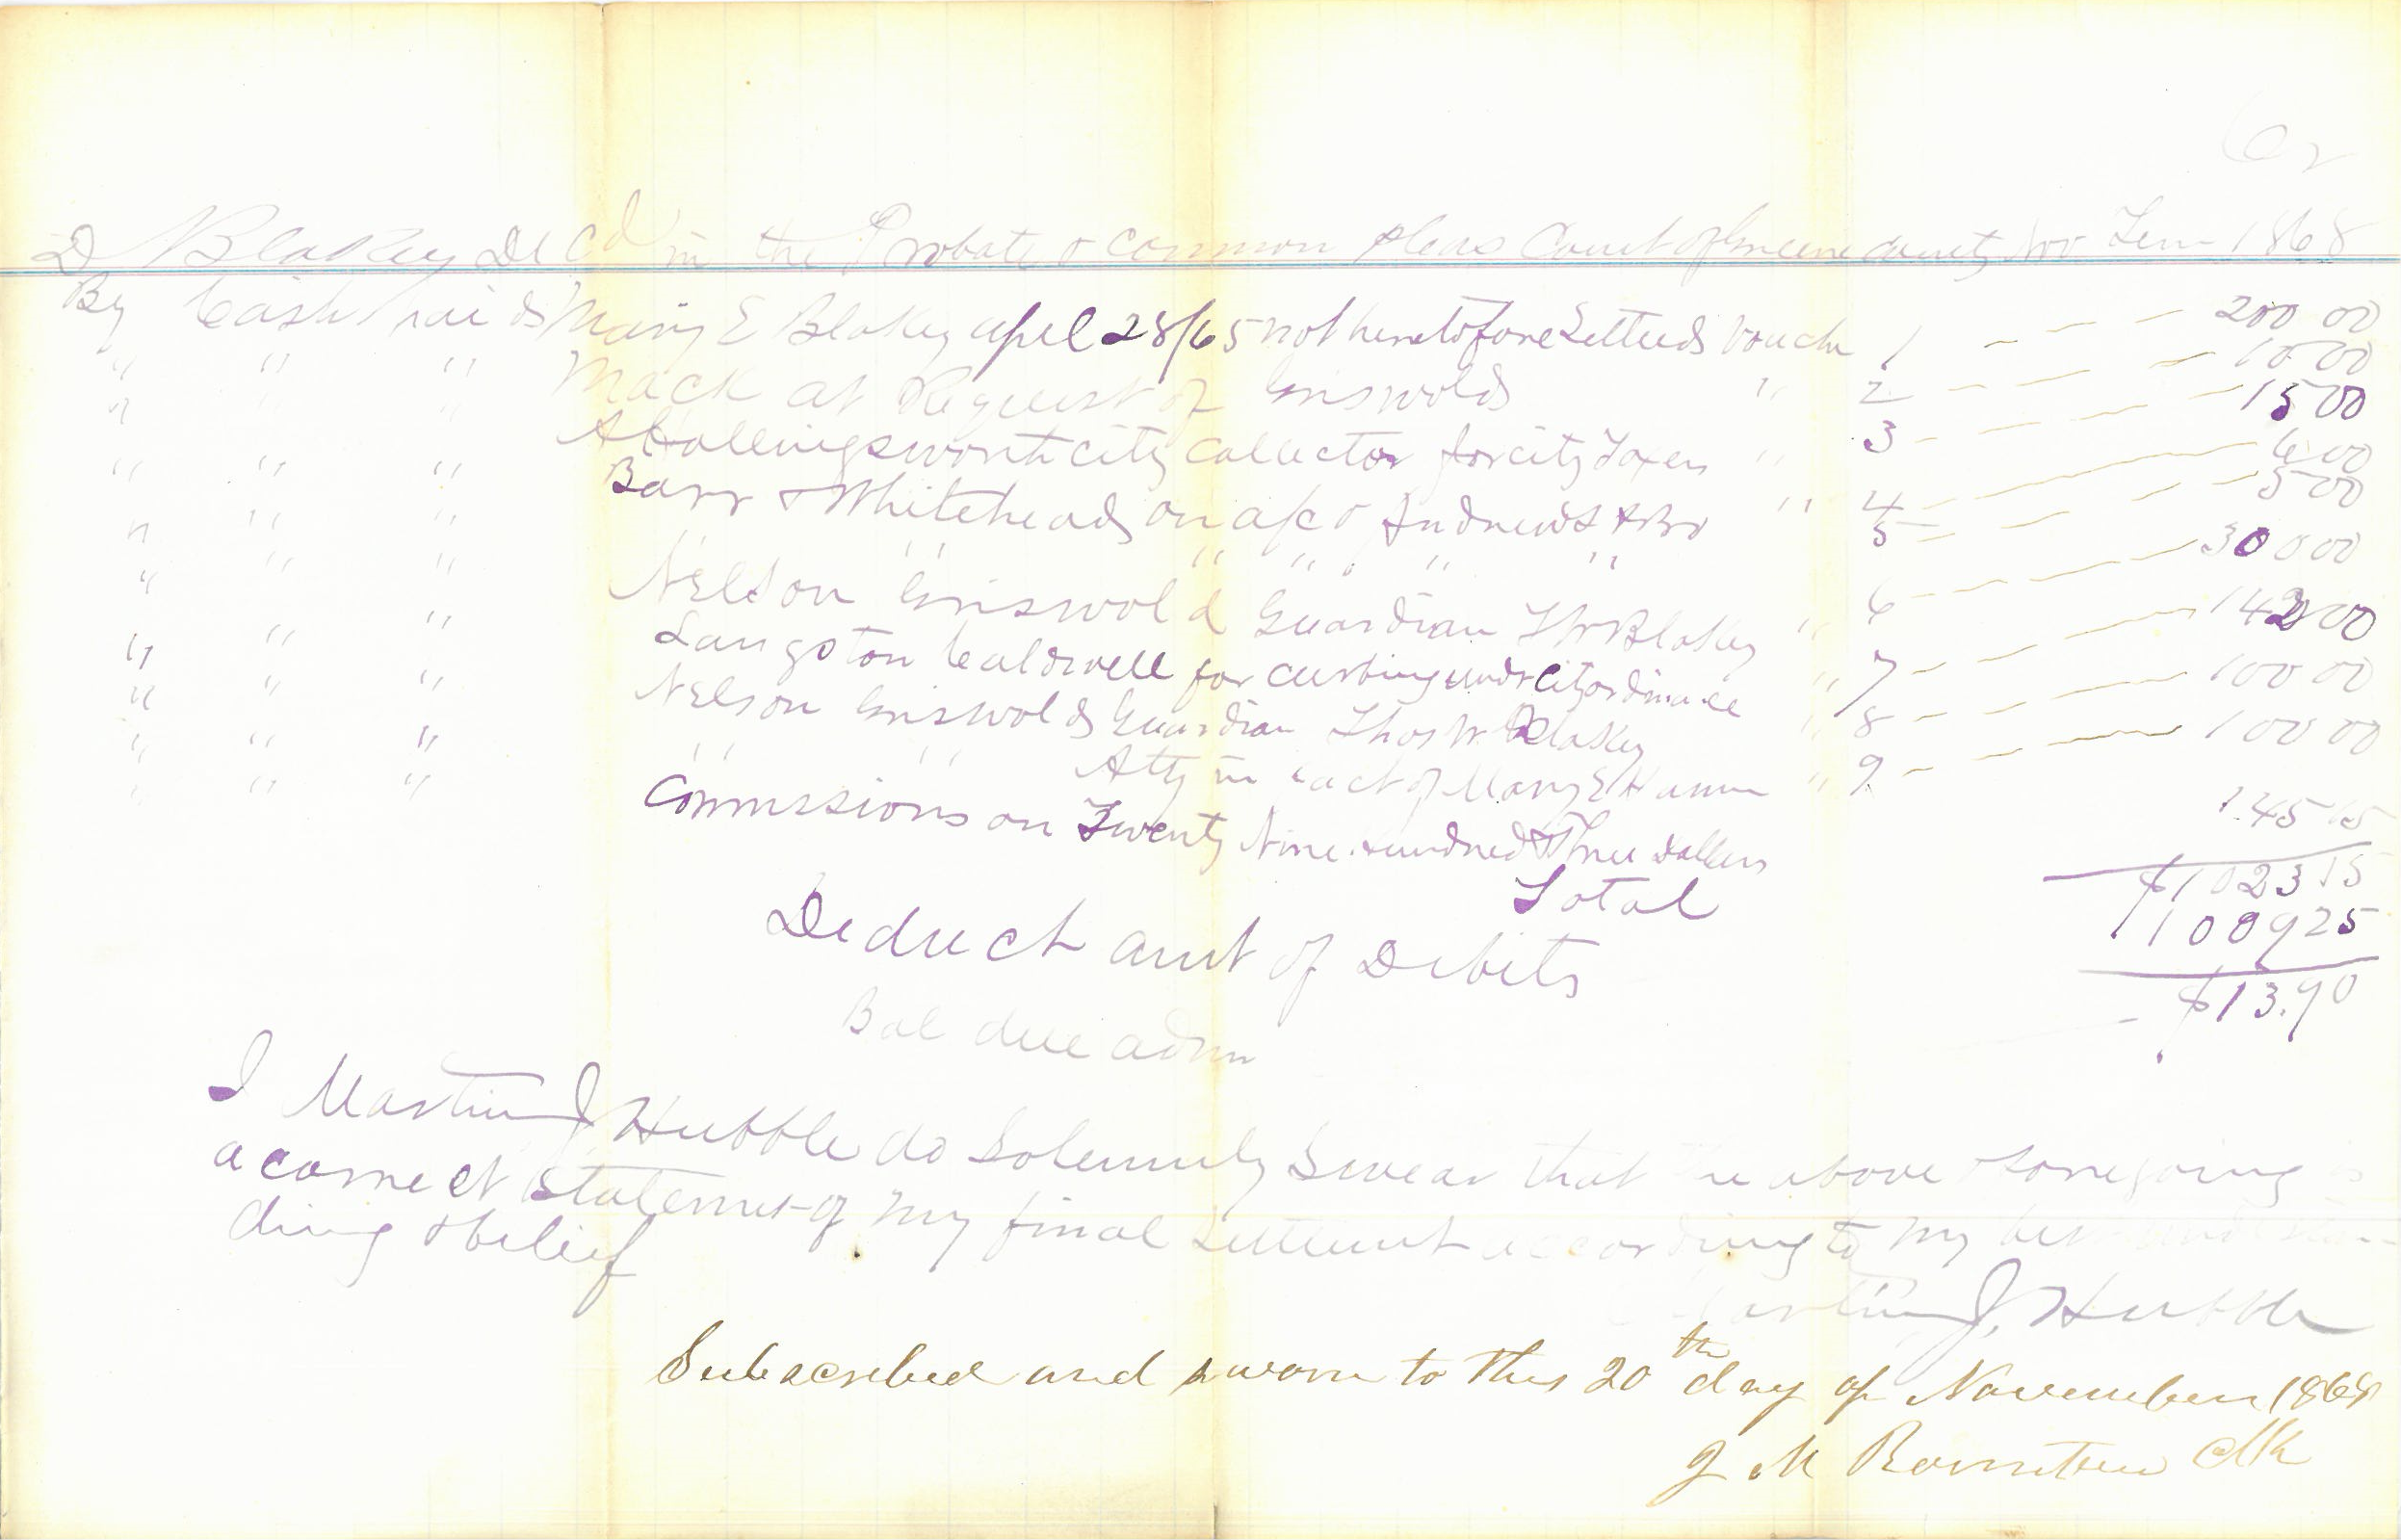 Cr
D Blakey Decd in the Probate & Common Pleas Court of Greene County Nov Term 1868
By Cash Paid Mary E Blakey April 28/65 not heretofore Settled Vouche 1 200 00
" " " Mack at Request of Griswold " 2 10 00
" " " A Hollingsworth city Collector for city Taxes " 3 15 00
" " " Barr & Whitehead on a/c o Andrews & Bro " 4 6 00
" " " " " " " " " 5 5 00
" " " Nelson Griswold Guardian Th W Blakey " 6 300 00
" " " Langston Caldwell for Curbing under City ordinance " 7 142 00
" " " Nelson Griswold Guardian Thos W Blakey " 8 100 00
" " " " " Atty in Fact of Mary E Hamm " 9 100 00
" " " Commissions on Twenty Nine Hundred & Three Dollars 145 15
Total $1023 15
Deduct amt of Debits 1009 25
Bal due admr $13.90
I Martin J Hubble do Solemnly Swear that the above & foregoing is
a correct Statemet of my final Settlement according to my best understan-
ding & belief
Martin J. Hubble
Subscribed and sworn to this 20th day of November 1868
J M Rountree Clk